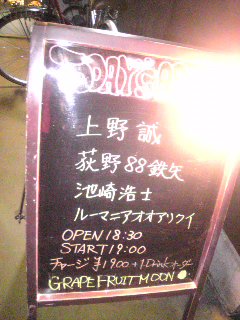 TODAY'S
上野 誠
荻野88鉄矢
池崎浩士
ルーマニアオオアリクイ
OPEN 18:30
START 19:00
チャージ ¥1900+1Drinkオーダー
GRAPEFRUIT MOON